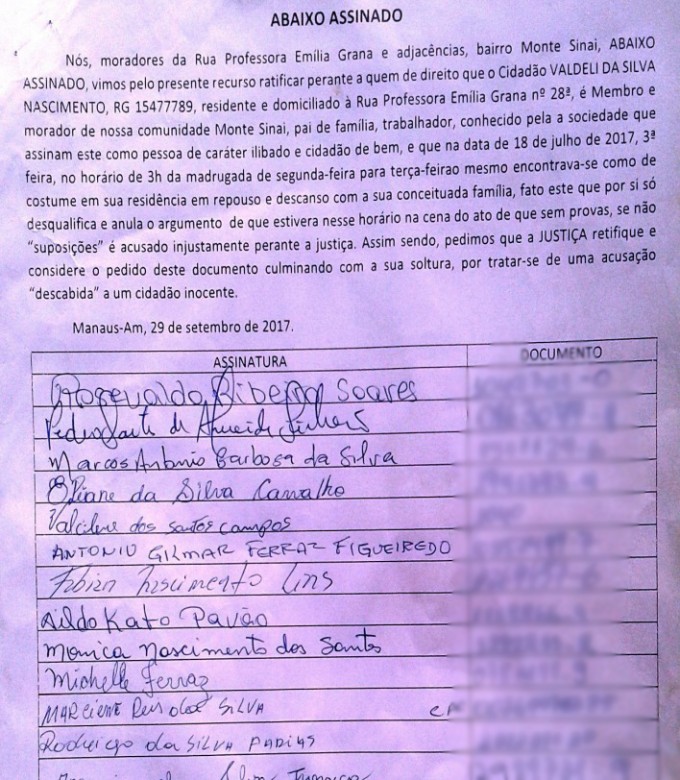 ABAIXO ASSINADO
Nós, moradores da Rua Professora Emília Grana e adjacências, bairro Monte Sinai, ABAIXO
ASSINADO, vimos pelo presente recurso ratificar perante a quem de direito que o Cidadão VALDELI DA SILVA
NASCIMENTO, RG 15477789, residente e domiciliado à Rua Professora Emília Grana nº 28ª, é Membro e
morador de nossa comunidade Monte Sinai, pai de família, trabalhador, conhecido pela a sociedade que
assinam este como pessoa de caráter ilibado e cidadão de bem, e que na data de 18 de julho de 2017, 3ª
feira, no horário de 3h da madrugada de segunda-feira para terça-feirao mesmo encontrava-se como de
costume em sua residência em repouso e descanso com a sua conceituada família, fato este que por si só
desqualifica e anula o argumento de que estivera nesse horário na cena do ato de que sem provas, se não
“suposições” é acusado injustamente perante a justiça. Assim sendo, pedimos que a JUSTIÇA retifique e
considere o pedido deste documento culminando com a sua soltura, por tratar-se de uma acusação
“descabida” a um cidadão inocente.
Manaus-Am, 29 de setembro de 2017.
ASSINATURA DOCUMENTO
Ribeiro Soares
de Almeida
Marcos Antonio Barbosa da Silva
Eliane da Silva Carvalho
dos santos campos
ANTONIO GILMAR FERRAZ FIGUEIREDO
Nascimento Lins
Aildo Kato Pavão
Monica nascimento dos Santos
Michelle Ferraz
SILVA
Rodrigo da SILVA